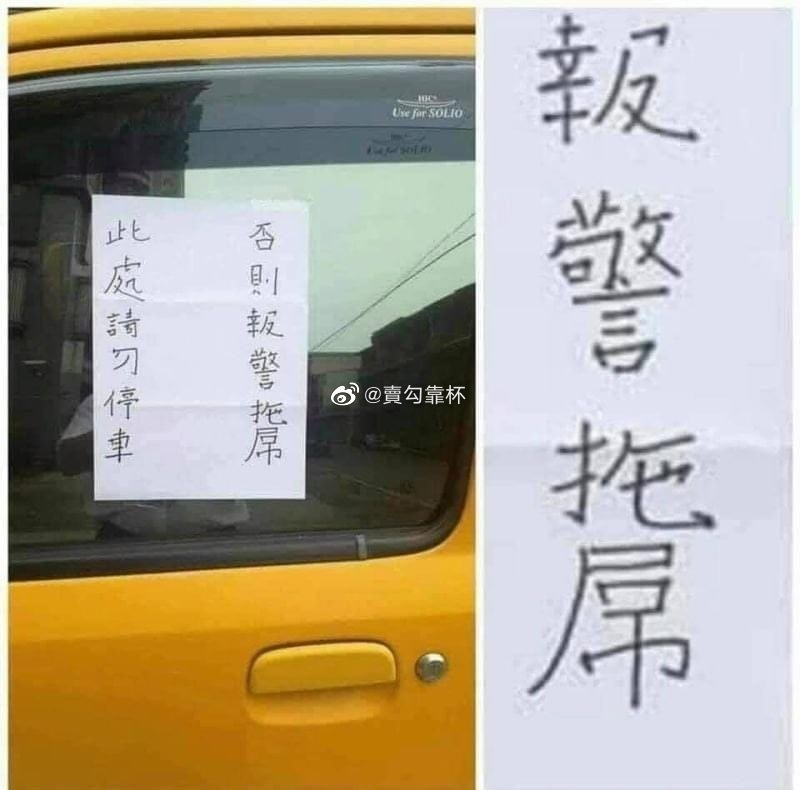 HIC®
Use for SOLIO
HIC®
Use for SOLIO
此處請勿停車
否則報警拖屌
@賣勾靠杯
報警拖屌